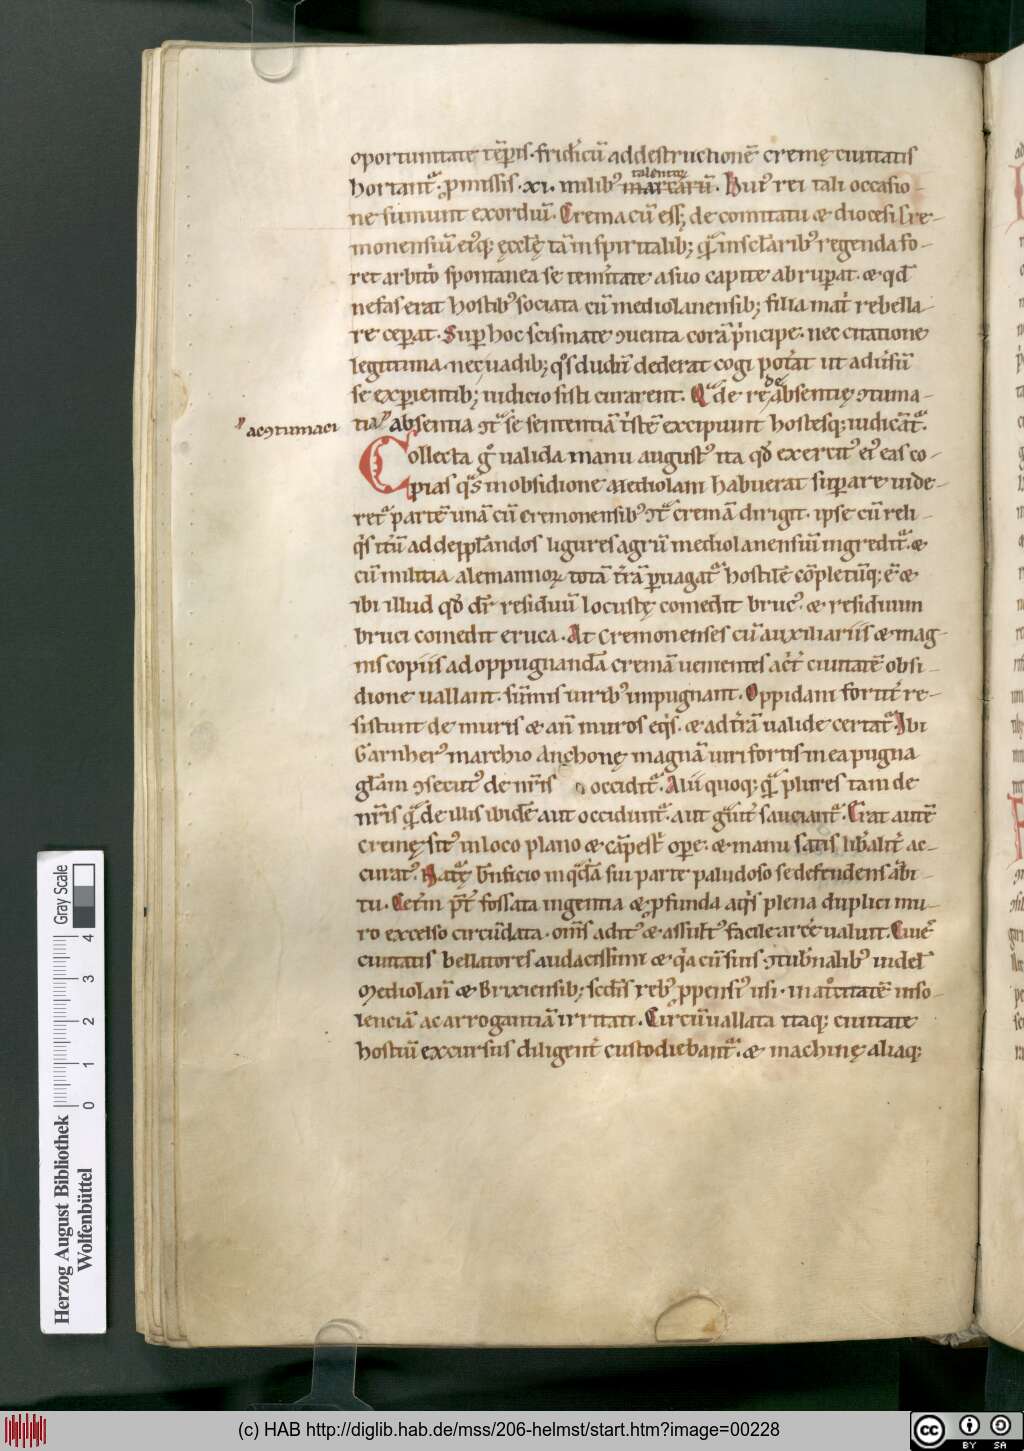 oportunitate tēp̄is. frid'icū ad destructionē cremę ciuitatis
hortant᷑. p̄missis .xi. milib᷒ marcarū. Hui᷒ rei tali occasio-
talentoꝝ
ne sumunt exordiū. Crema cū ess; de comitatu & diocesi Cre-
monensiū ei᷒q; ęcclę̄ tā in spiritalib; quā in seclarib᷒ regenda fo-
ret arbit'o spontanea se temitate a suo capite abruperat. & qd̄
nefas erat hostib᷒ sociata cū mediolanensib; filia mat' rebella-
re ceperat. Sup hoc scismate ꝯuenta corā p'ncipe. nec citatione
legittima. nec uadib; qͦs dudū dederat cogi pot'at ut adu'sū
se expientib; iudicio sisti curarent. Qua de re de absentię ꝯtuma-
tia absentia ꝯt᷑ se sententiā t'stē excipiunt hostesq; iudicāt᷑.
ac ꝯtumaci
Collecta gͦ ualida manu august᷒ ita qd̄ exercit᷒ ei᷒ eas co-
pias quas in obsidione Mediolani habuerat supare uide-
ret᷑ partē unā cū cremonensib᷒ ꝯt᷑ cremā dirigit. ipse cū reli-
q's itū ad depplandos ligures agrū mediolanensiū ingredit᷑. &
cū militia alemannoꝝ totā t'rā puagat᷑ hostilē cōpletūq; ē &
ibi illud qd̄ dr̄ residuū locustę comedit bruc᷒. & residuum
bruci comedit eruca. At cremonenses cū auxiliariis & mag-
nis copiis ad oppugnandā cremā uenientes act' ciuitatē obsi-
dione uallant. sūmis uirib᷒ impugnant. Oppidani fortit' re-
sistunt de muris & an̄ muros eq's. & ad t'rā ualide certat᷑. Ibi
Garnher᷒ marchio Anchonę magnā uiri fortis in ea pugna
glām ꝯsecut᷒ de nr̄is occidit᷑. Alii quoq; quā plures tam de
nr̄is quā de illis ibidē aut occidunt᷑. aut g'uit' sauciant᷑. Erat autē
cremę sit᷒ in loco plano & cāpest' ope. & manu satis lib'alit' ac-
curat᷒. Natᷓę bn̄ficio in qdā sui parte paludoso se defendens abi-
tu. Cet'm p̄t' fossata ingentia & pfunda aq's plena duplici mu-
ro excelso circūdata. om̄s adit᷒ & assult᷒ facile arcē ualuit. Ciues
ciuitatis bellatores audacissimi & q'a cū suis ꝯtub'nalib᷒ uidel'
Mediolan̄ & Brixiensib; secd'is reb᷒ ppensi᷒ usi. inat'citatē inso-
lenciā ac arrogantiā irritati. Circūuallata itaq; ciuitate
hostiū excursus diligent' custodiebant᷑. & machinę aliaq;
Herzog August Bibliothek
Wolfenbüttel
Gray Scale
0 1 2 3 4
(c) HAB http://diglib.hab.de/mss/206-helmst/start.htm?image=00228
cc BY SA